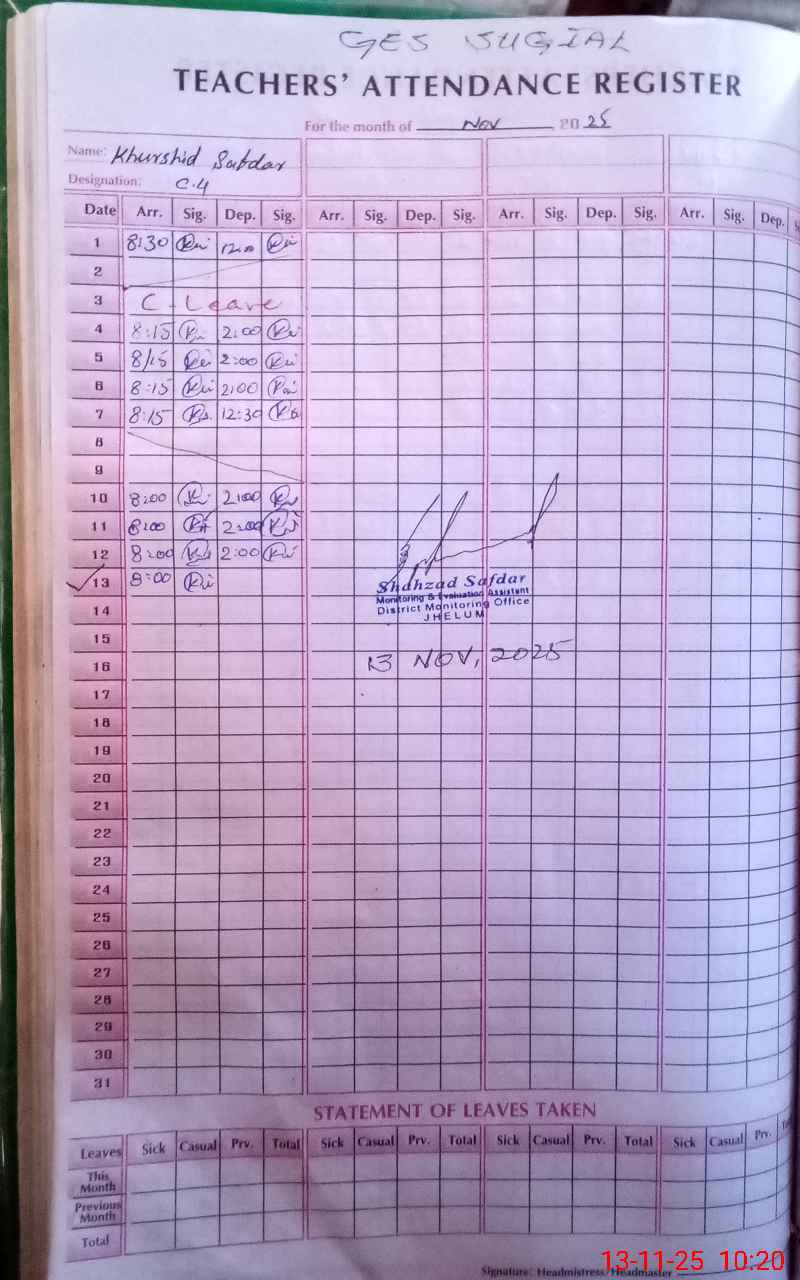 GES SUGIAL
TEACHERS' ATTENDANCE REGISTER
For the month of Nov 2025
Name: Khurshid Safdar
Designation: C.4
Date Arr. Sig. Dep. Sig. Arr. Sig. Dep. Sig. Arr. Sig. Dep. Sig. Arr. Sig. Dep.
1 8:30 12:00
2
3 C-Leave
4 8:15 2:00
5 8/15 2:00
6 8:15 2:00
7 8:15 12:30
8
9
10 8:00 2:00
11 8:00 2:00
12 8:00 2:00
13 8:00
Shahzad Safdar
Monitoring & Evaluation Assistant
District Monitoring Office
JHELUM
14
15
16
13 NOV, 2025
17
18
19
20
21
22
23
24
25
26
27
28
29
30
31
STATEMENT OF LEAVES TAKEN
Leaves Sick Casual Prv. Total Sick Casual Prv. Total Sick Casual Prv. Total Sick Casual Prv.
This Month
Previous Month
Total
Signature: Headmistress/Headmaster
13-11-25 10:20